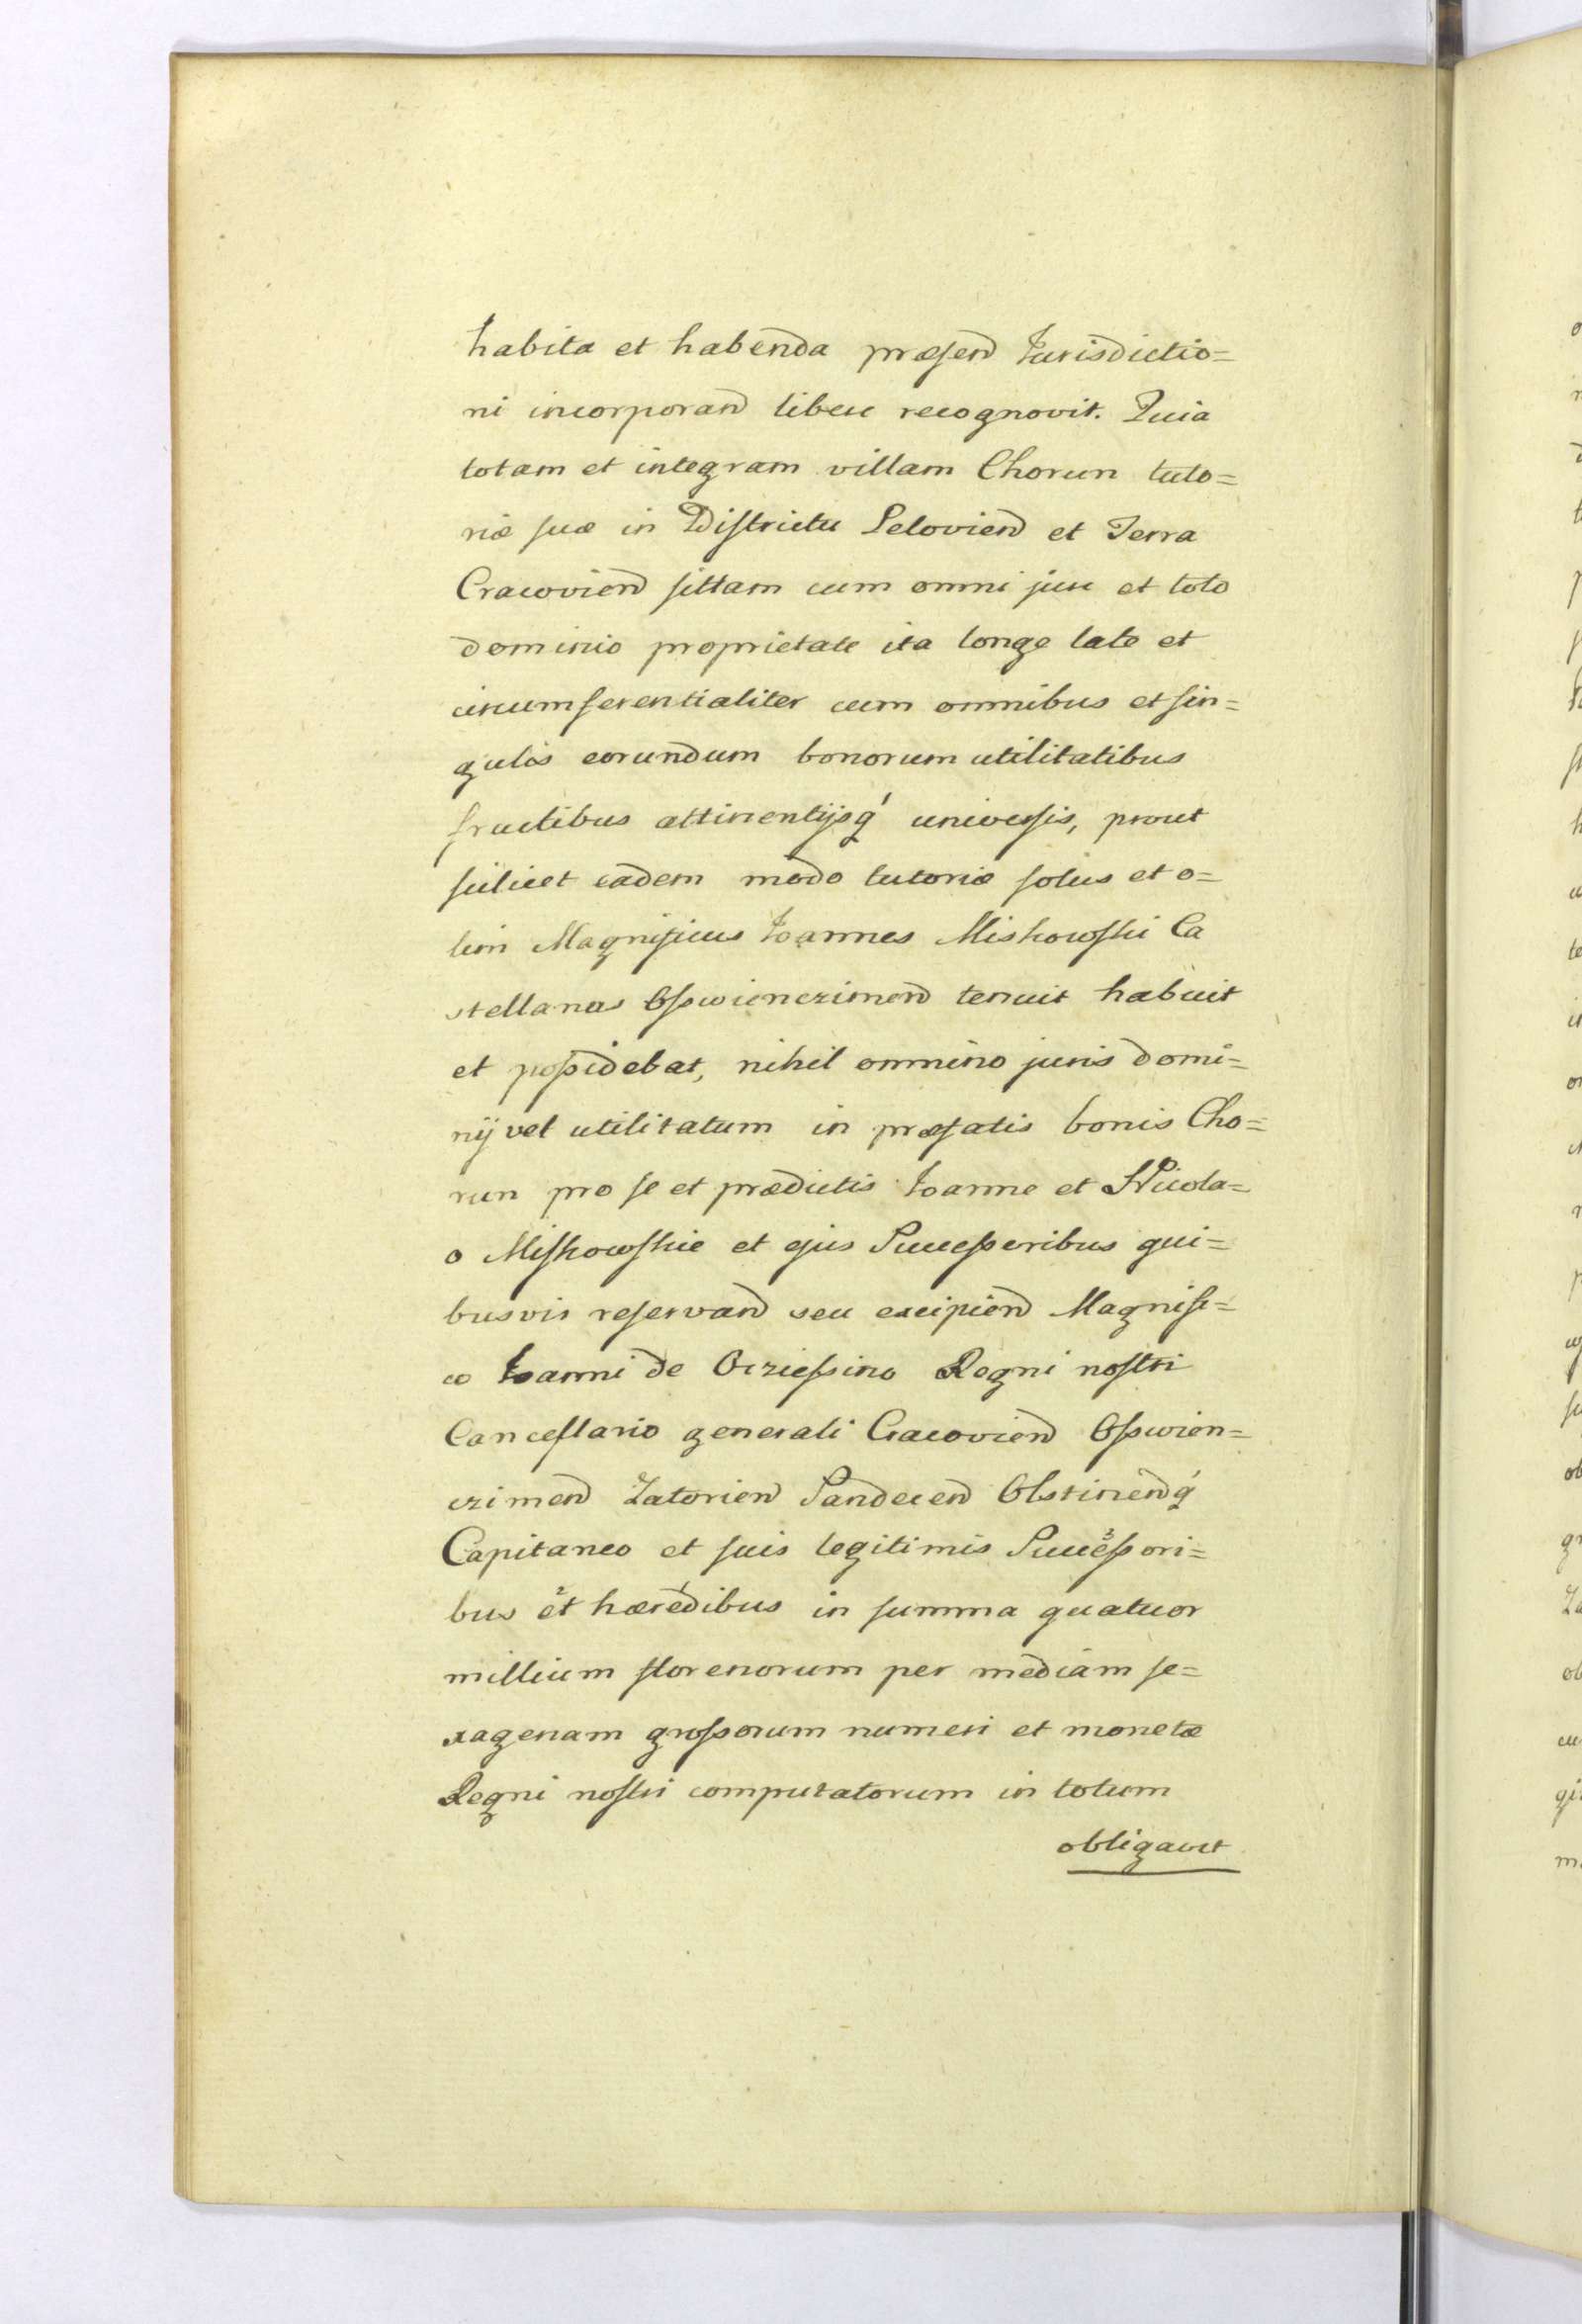 habita et habenda præsen̄d Jurisdictio=
ni incorporan̄d libere recognovit. Quia
totam et integram villam Chorun tuto=
riæ suæ in Districtu Lelovien̄d et Terra
Cracovien̄d sittam cum omni jure et toto
dominio proprietate ita longe late et
circumferentialiter cum omnibus et sin=
gulis eorundum bonorum utilitatibus
fructibus attinentijsq́ universis, prout
scilicet eadem modo tutoriæ solus et o=
lim Magnificus Joannes Miskowski Ca
stellanus Osswienczimen̄d tenuit habuit
et possidebat, nihil omnino juris domi=
nij vel utilitatum in præfatis bonis Cho=
run pro se et prædictis Joanne et Nicola=
o Miskowskie et ejus Successoribus qui=
busvis reservan̄d seu excipien̄d Magnifi=
co Joanni de Ocziessino Regni nostri
Cancellario generali Cracovien̄d Osswien=
czimen̄d Zatorien̄d Sandecen̄d Olstinen̄dq́
Capitaneo et suis legitimis Successori=
bus et hæredibus in summa quatuor
millium florenorum per mediam se=
xagenam grossorum numeri et monetæ
Regni nostri computatorum in totum
obligavit